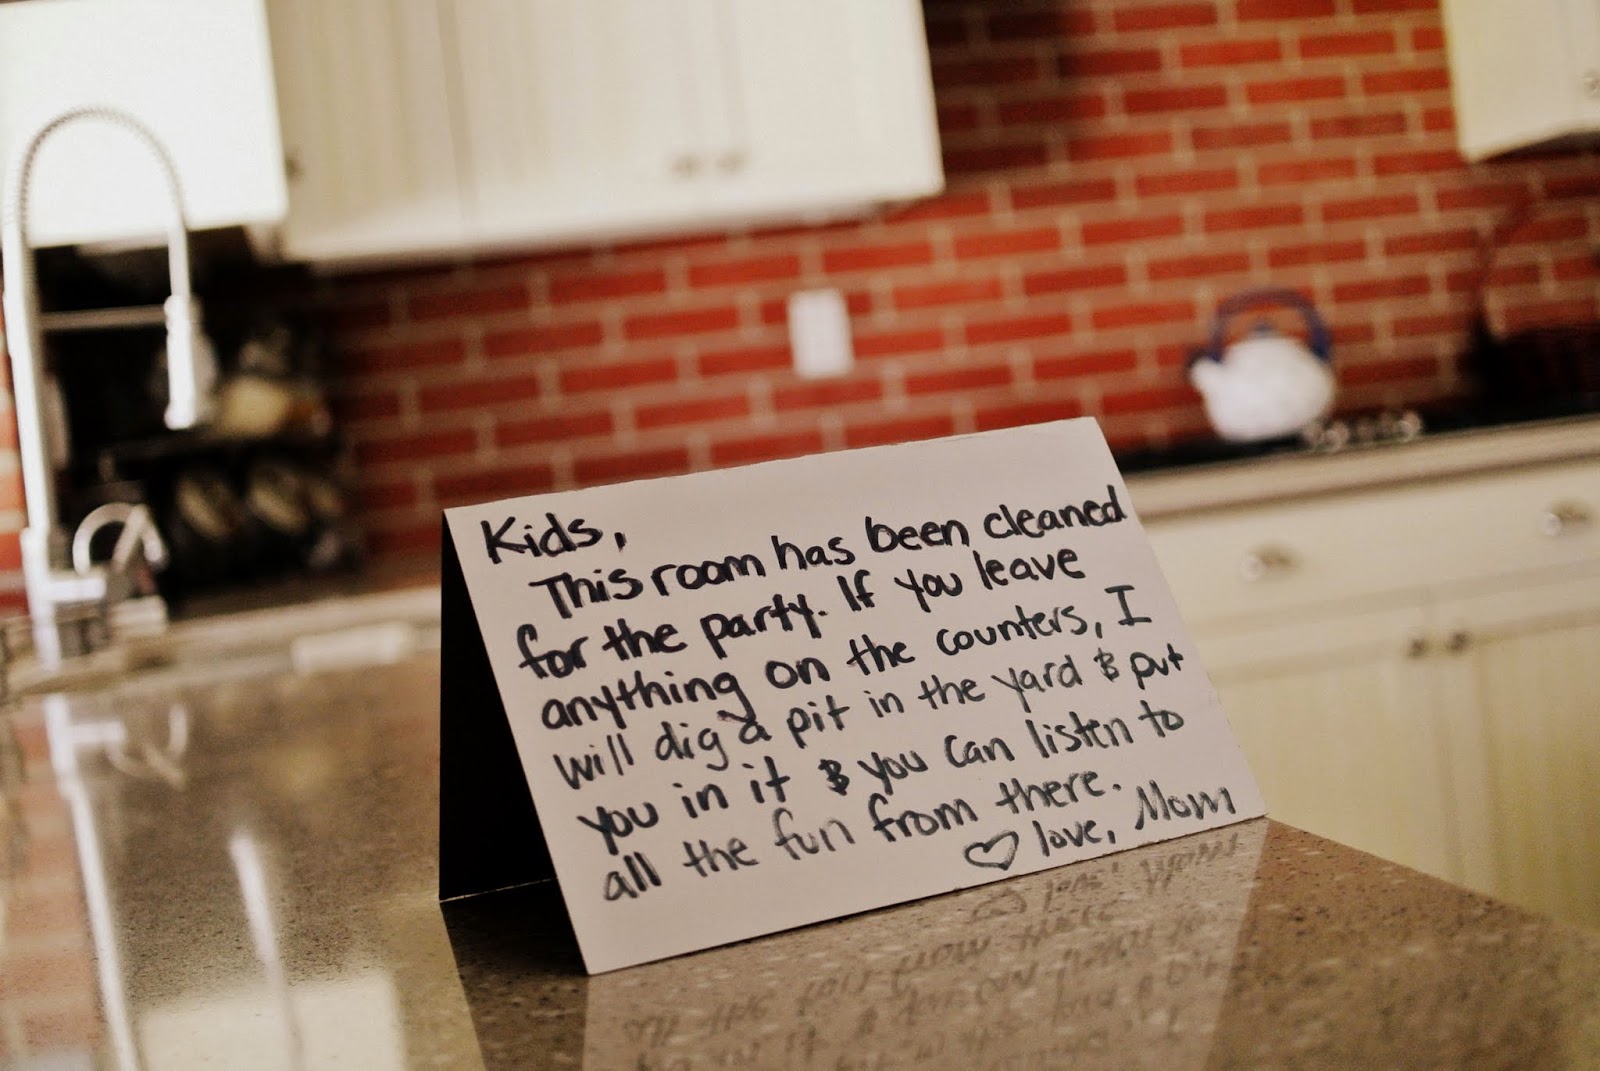 Kids,
This room has been cleaned
for the party. If you leave
anything on the counters, I
will dig a pit in the yard & put
you in it & you can listen to
all the fun from there.
♡ love, Mom